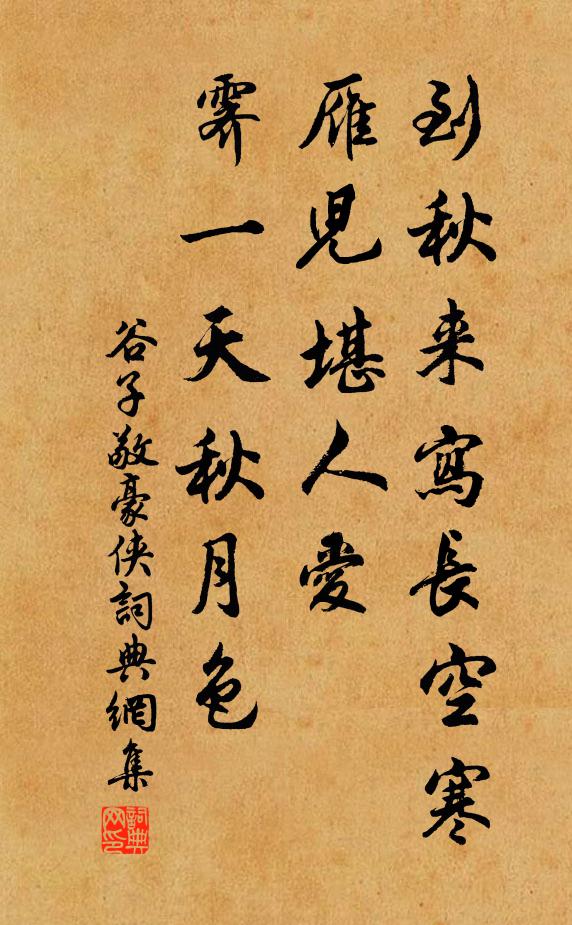 到秋来寫長空寒
雁児堪人愛
霽一天秋月色
谷子敬豪侠詞典網集
詞典
网印